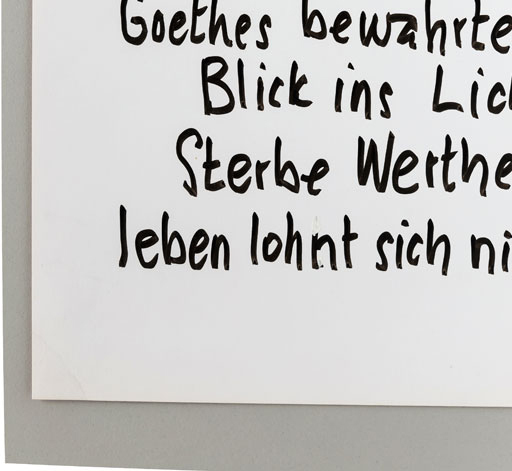 Goethes bewährte
Blick ins Lic
Sterbe Werthe
leben lohnt sich ni